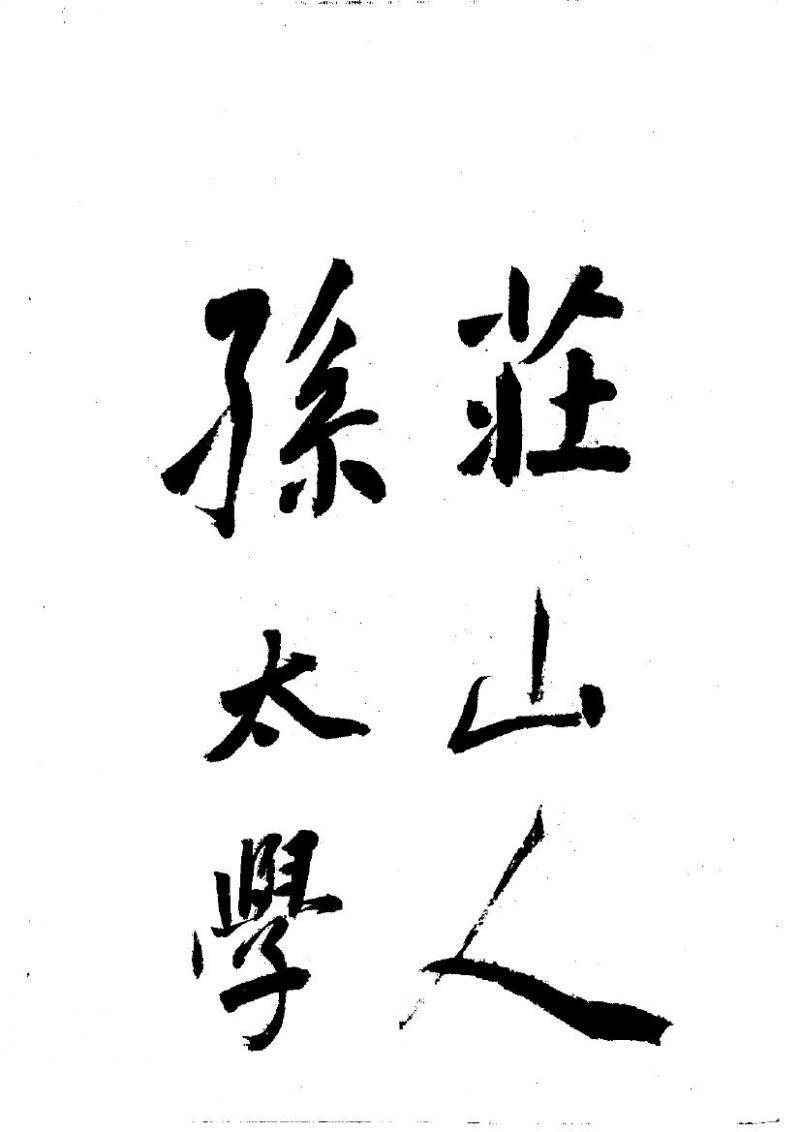 莊山人
孫太學